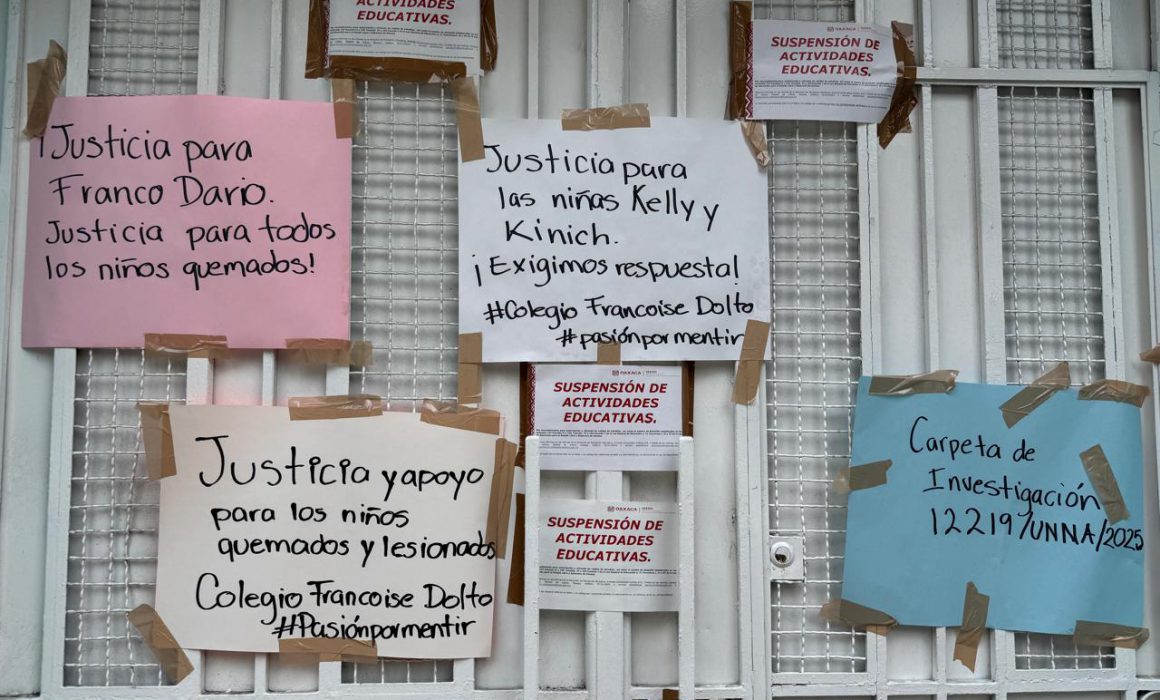 ACTIVIDADES
EDUCATIVAS.
OAXACA
SUSPENSIÓN DE
ACTIVIDADES
EDUCATIVAS.
¡Justicia para
Franco Dario.
Justicia para todos
los niños quemados!
Justicia para
las niñas Kelly y
Kinich.
¡Exigimos respuesta!
#Colegio Francoise Dolto
#pasiónpormentir
OAXACA
SUSPENSIÓN DE
ACTIVIDADES
EDUCATIVAS.
Justicia y apoyo
para los niños
quemados y lesionados
Colegio Francoise Dolto
#Pasiónpormentir
OAXACA
SUSPENSIÓN DE
ACTIVIDADES
EDUCATIVAS.
Carpeta de
Investigación
12219/UNNA/2025